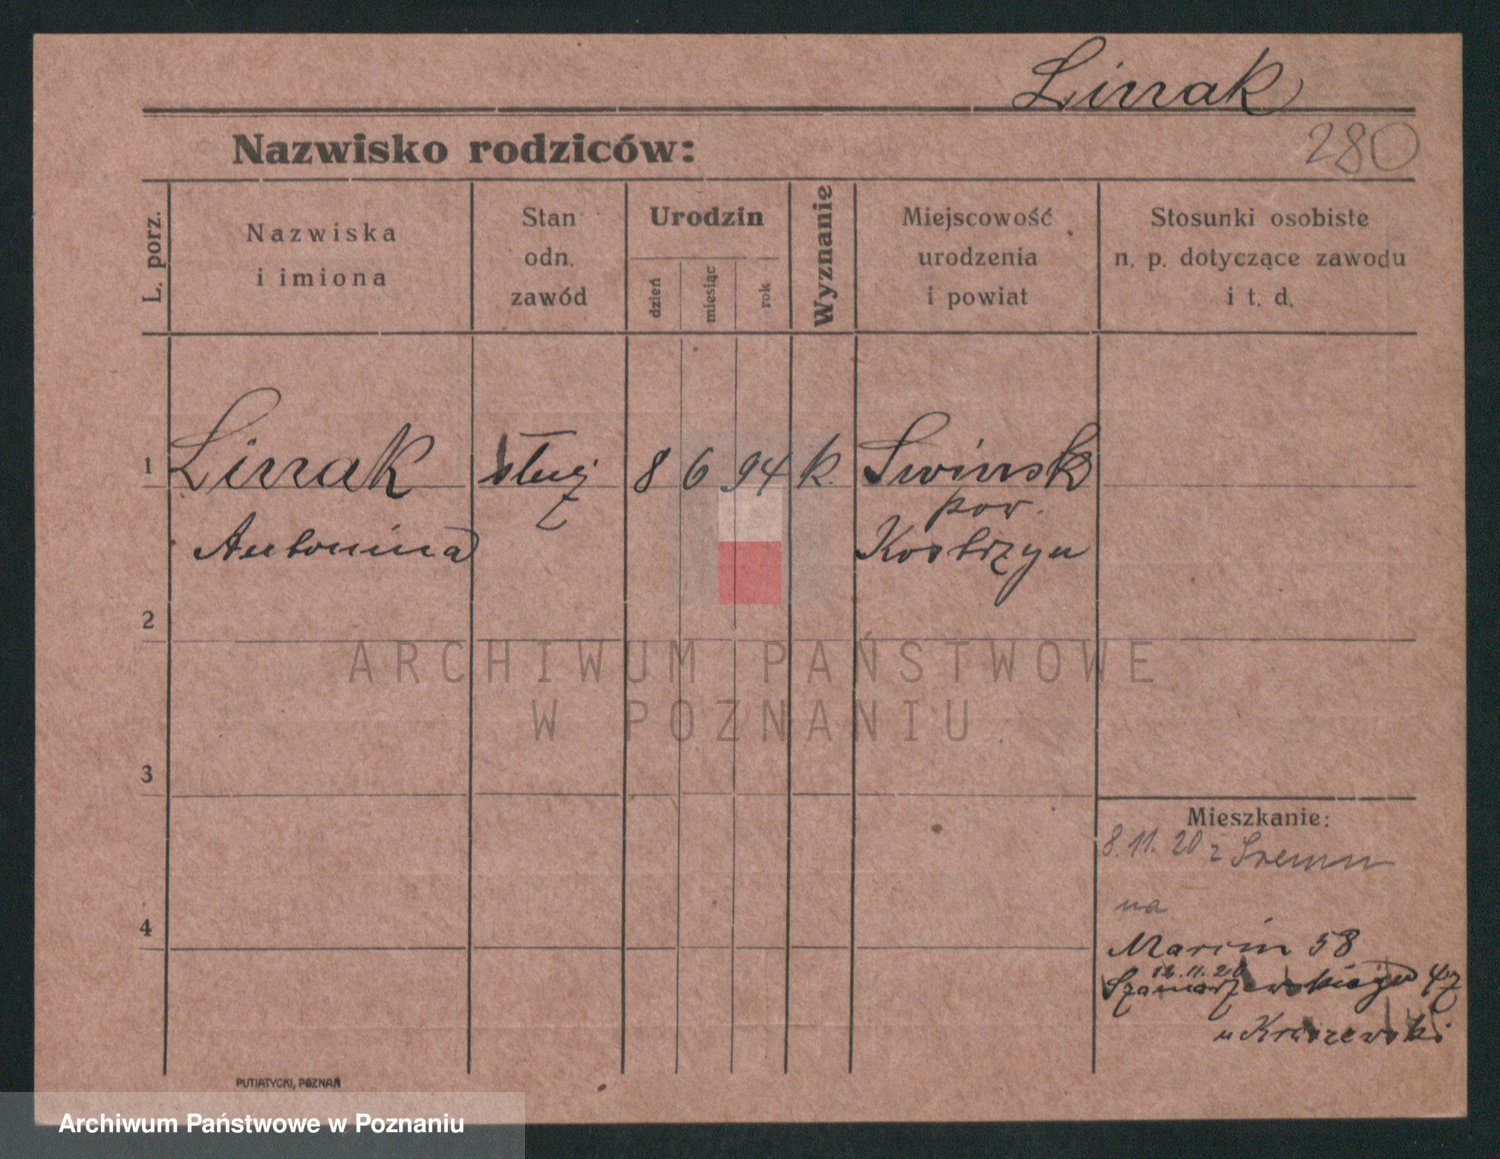 Linak
280
Nazwisko rodziców:
L. porz.
Nazwiska
i imiona
Stan
odn.
zawód
Urodzin
dzień
miesiąc
rok
Wyznanie
Miejscowość
urodzenia
i powiat
Stosunki osobiste
n. p. dotyczące zawodu
i t. d.
1 służ 8 6 94 k.
Antonina
pow.
Kostrzyn
2
ARCHIWUM PAŃSTWOWE
W POZNANIU
3
Mieszkanie:
8. 11. 20 z Śremu
na
4
Marcin 58
12. 11. 20
Szamarzewskiego
u
PUTIATYCKI, POZNAŃ
Archiwum Państwowe w Poznaniu